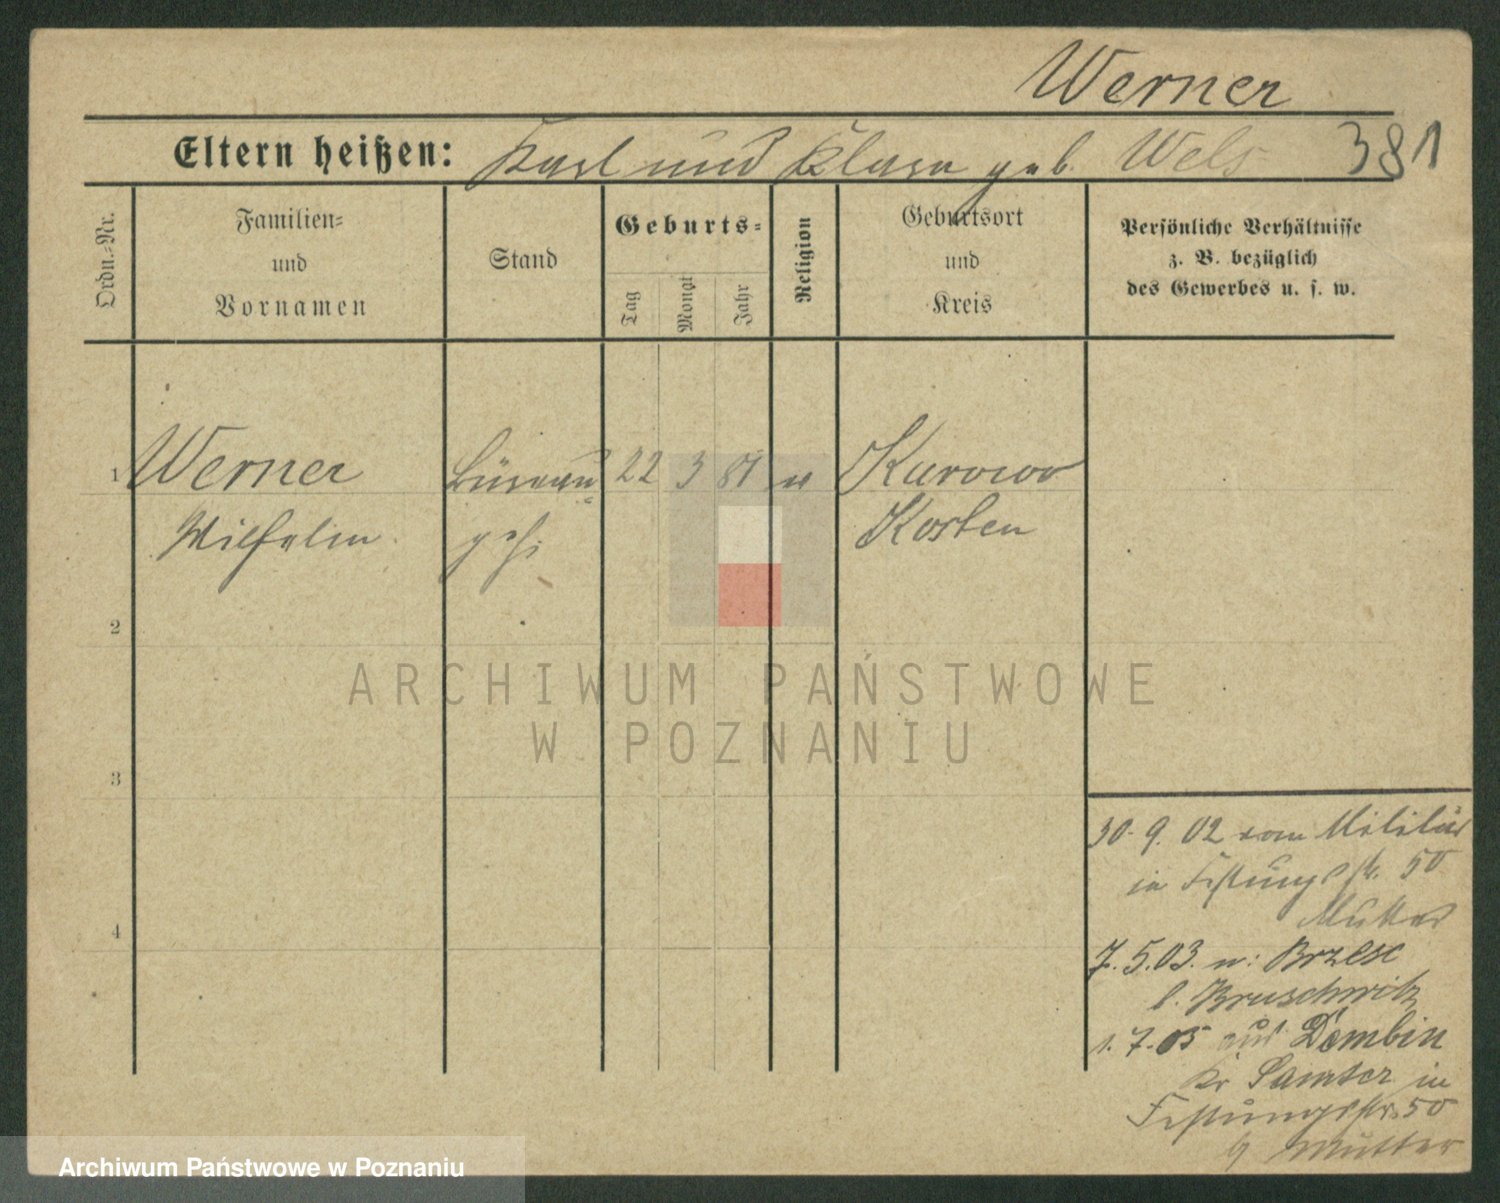 Werner
Eltern heißen: Karl und Klara geb. Wels 381
Ordn.-Nr.
Familien-
und
Vornamen
Stand
Geburts-
Tag
Monat
Jahr
Religion
Geburtsort
und
Kreis
Persönliche Verhältnisse
z. B. bezüglich
des Gewerbes u. s. w.
1 Werner 22 3 81 Kurowo
Wilhelm Kosten
2
3
4
30. 9. 02 vom Militär
in Festungsstr. 50
Mutter
7. 5. 03. n: Brzesc
b. Bruschwitz
1. 7. 05 aus Dembin
Kr Samter in
Festungsstr. 50
b Mutter
ARCHIWUM PAŃSTWOWE
W POZNANIU
Archiwum Państwowe w Poznaniu